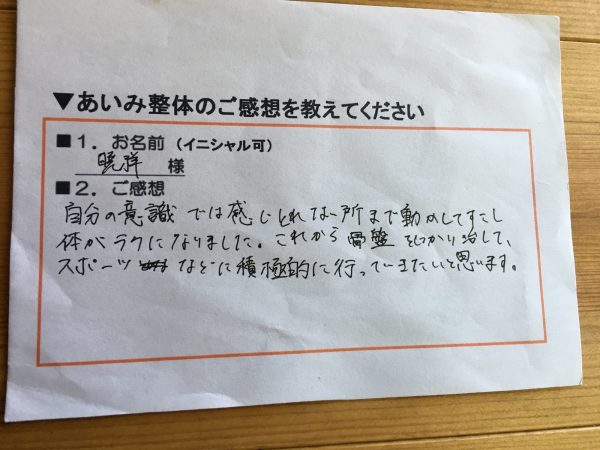 ▼あいみ整体のご感想を教えてください
■1．お名前（イニシャル可）
暁祥 様
■2．ご感想
自分の意識では感じとれない所まで動かしてすこし
体がラクになりました。これから骨盤をしっかり治して、
スポーツなどに積極的に行っていきたいと思います。